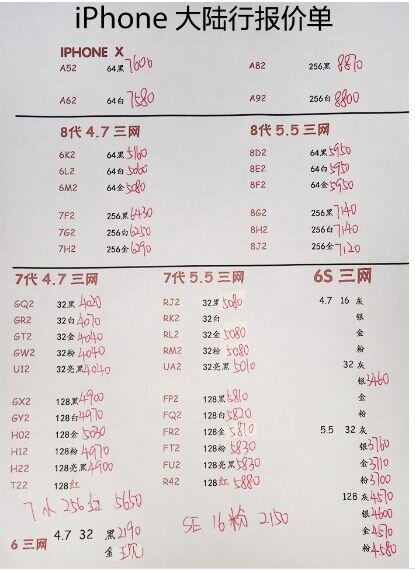 iPhone 大陆行报价单
IPHONE X
A52 64黑 7600 A82 256黑 8870
A62 64白 7580 A92 256白 8800
8代 4.7 三网 8代 5.5 三网
6K2 64黑 5160 8D2 64黑 5950
6L2 64白 5060 8E2 64白 5950
6M2 64金 5080 8F2 64金 5950
7F2 256黑 6430 8G2 256黑 7140
7G2 256白 6250 8H2 256白 7140
7H2 256金 6290 8J2 256金 7120
7代 4.7 三网 7代 5.5 三网 6S 三网
GQ2 32黑 4020 RJ2 32黑 5080 4.7 16 灰
GR2 32白 4070 RK2 32白 银
GT2 32金 4040 RL2 32金 5080 金
GW2 32粉 4040 RM2 32粉 5080 粉
U12 32亮黑 4040 UA2 32亮黑 5010 32 灰
银 3460
GX2 128黑 4900 FP2 128黑 5810 金
GY2 128白 4970 FQ2 128白 5820 粉
H02 128金 5030 FR2 128金 5810 5.5 32 灰
H12 128粉 4970 FT2 128粉 5830 银 3760
H22 128亮黑 4900 FU2 128亮黑 5830 金 3710
T22 128红 R42 128红 5880 粉 3700
128 灰 4570
7 256红 5650 银 4600
SE 16粉 2150 金 4570
6 三网 4.7 32 黑 2190 粉 4580
金